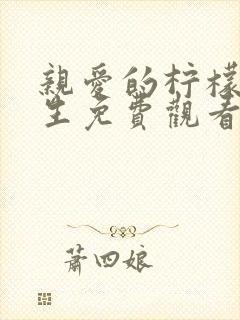 親愛的柠檬
生免費觀看
蕭四娘